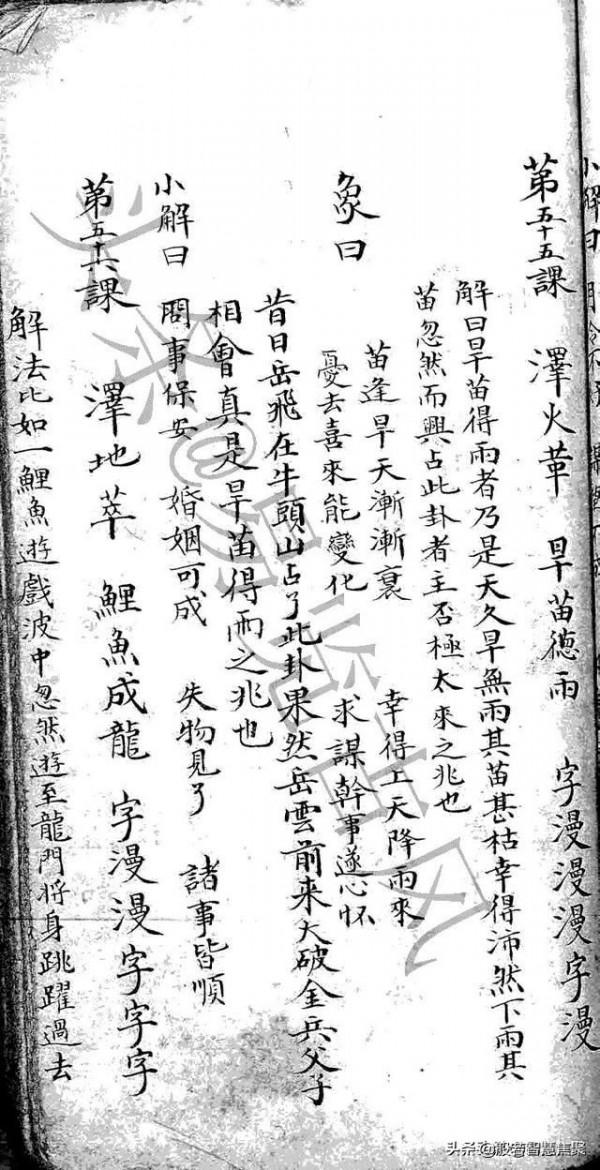 小解曰
第五十五課 澤火革 旱苗德雨 字漫漫漫字漫
解曰旱苗得雨者乃是天久旱無雨其苗甚枯幸得沛然下雨其
苗忽然而興占此卦者主否極太來之兆也
象曰
苗逢旱天漸漸衰 幸得上天降雨來
憂去喜來能變化 求謀幹事遂心怀
昔日岳飛在牛頭山占了此卦果然岳雲前来大破金兵父子
相會真是旱苗得雨之兆也
小解曰 問事保安 婚姻可成 失物見了 諸事皆順
第五十六課 澤地萃 鯉魚成龍 字漫漫字字字
解法比如一鯉魚遊戲波中忽然遊至龍門将身跳躍過去
头条@易览古风
头条@般若智慧焦聚